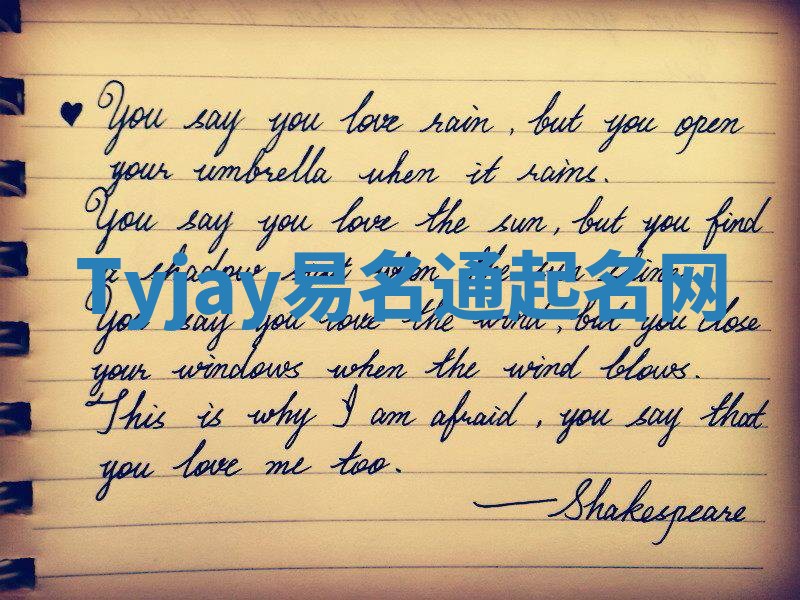 ♥ You say you love rain, but you open
your umbrella when it rains.
You say you love the sun, but you find
a shadow spot when the sun shines.
Tyjay易名通起名网
You say you love the wind, but you close
your windows when the wind blows.
This is why I am afraid, you say that
you love me too.
—Shakespeare